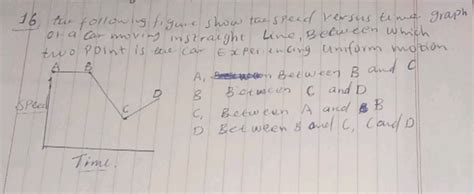 16, the following figure show the speed versus time graph
of a car moving in straight Line, Between which
two Point is the car Experiencing Uniform motion
A, Between B and C
B Between C and D
C, Between A and B
D Between B and C, C and D
A B
C
D
Speed
Time.